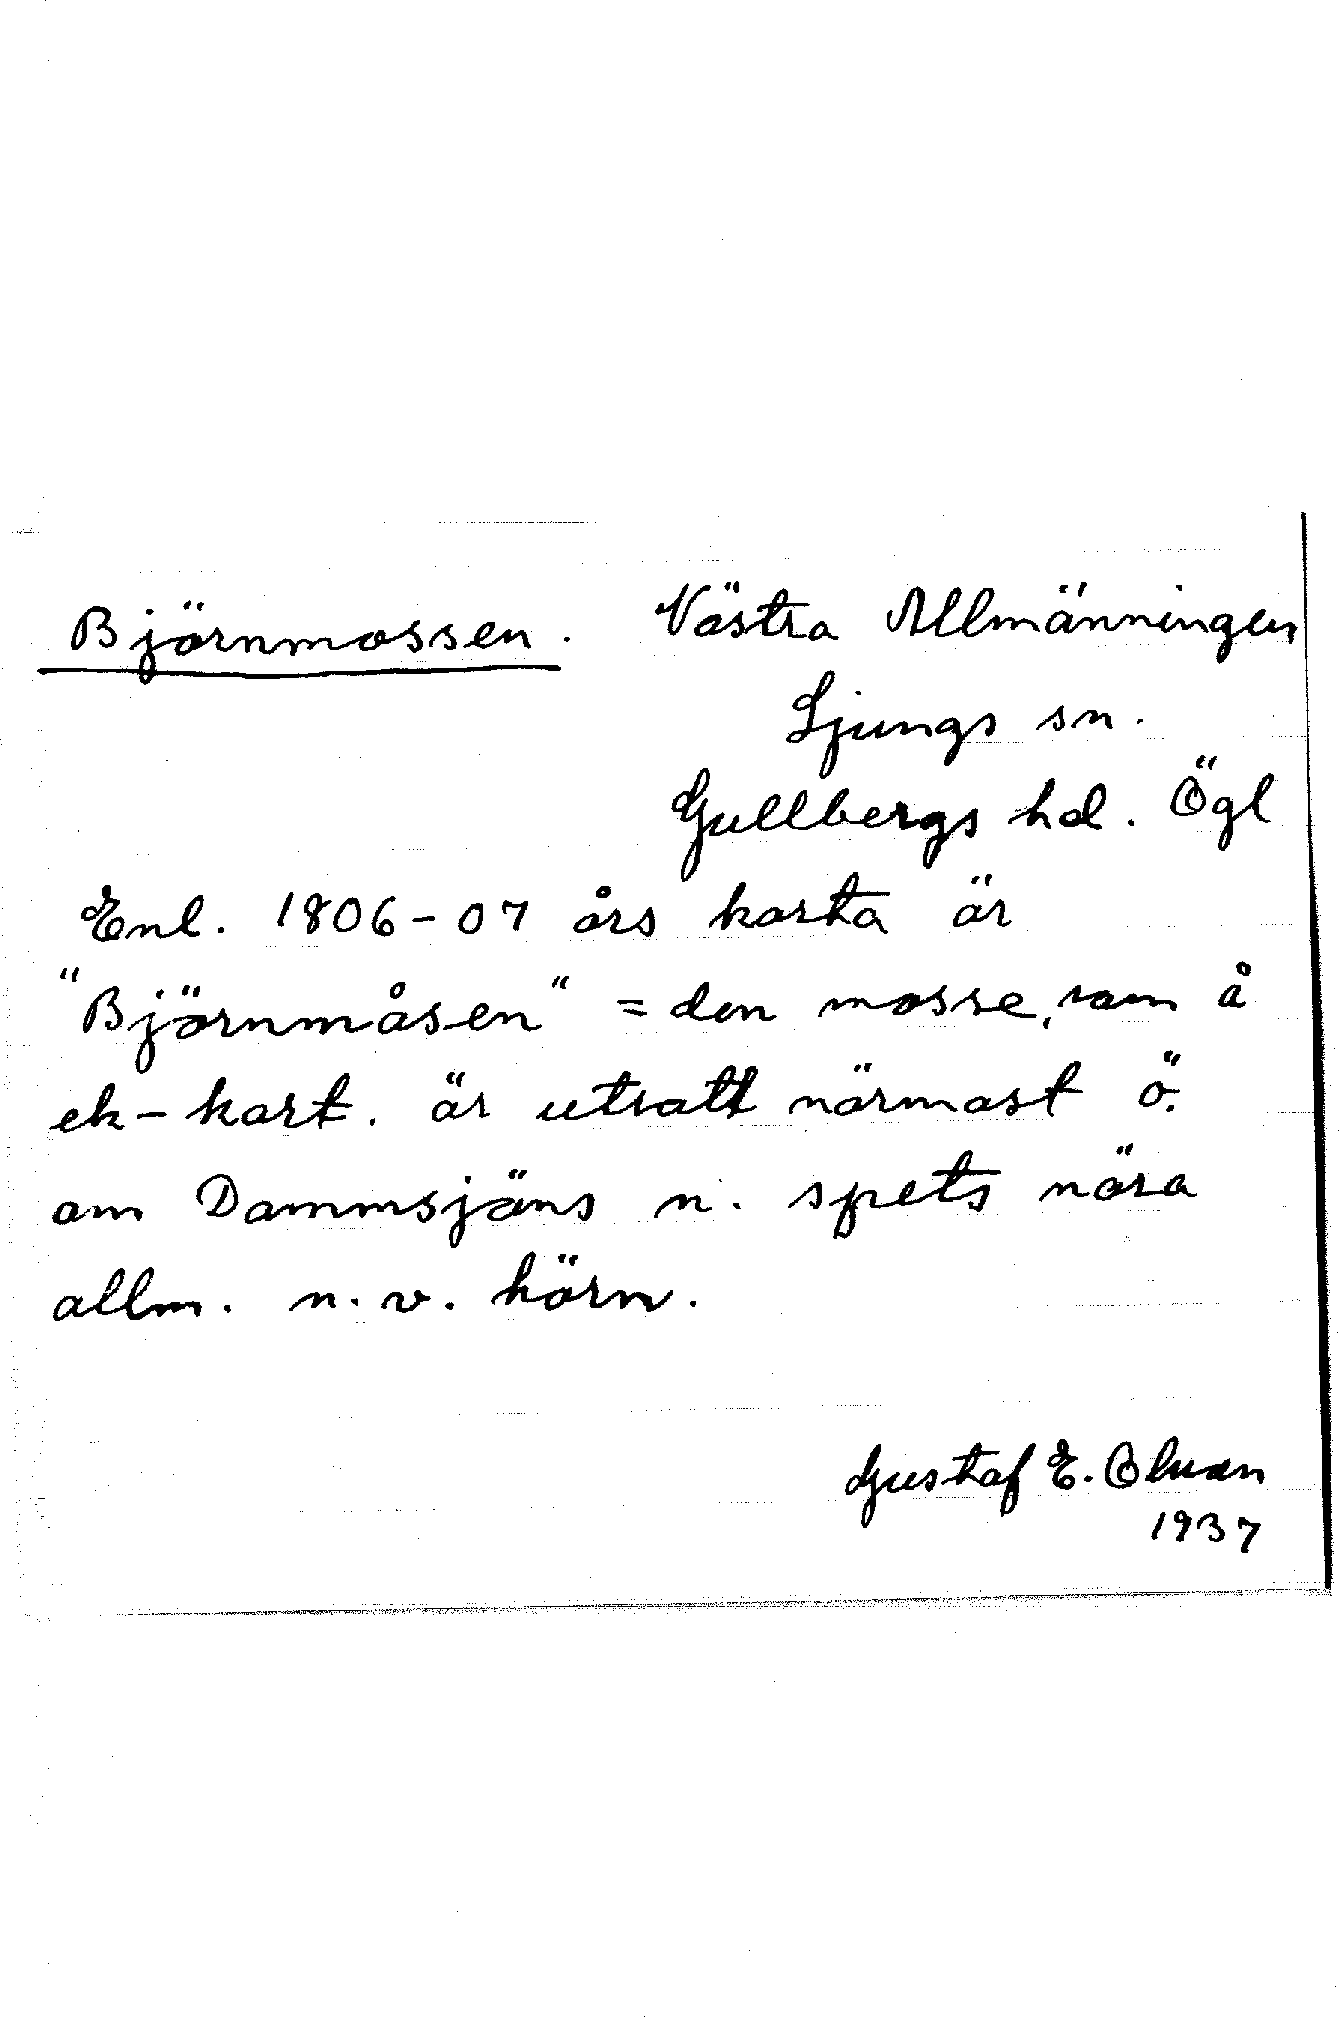 Björnmossen. Västra Allmänningen
Ljungs sn.
Gullbergs hd. Ögl
Enl. 1806-07 års karta är
"Björnmåsen" = den mosse, som å
ek-kart. är utsatt närmast ö.
om Dammsjöns n. spets nära
allm. n.v. hörn.
Gustaf E.
1937